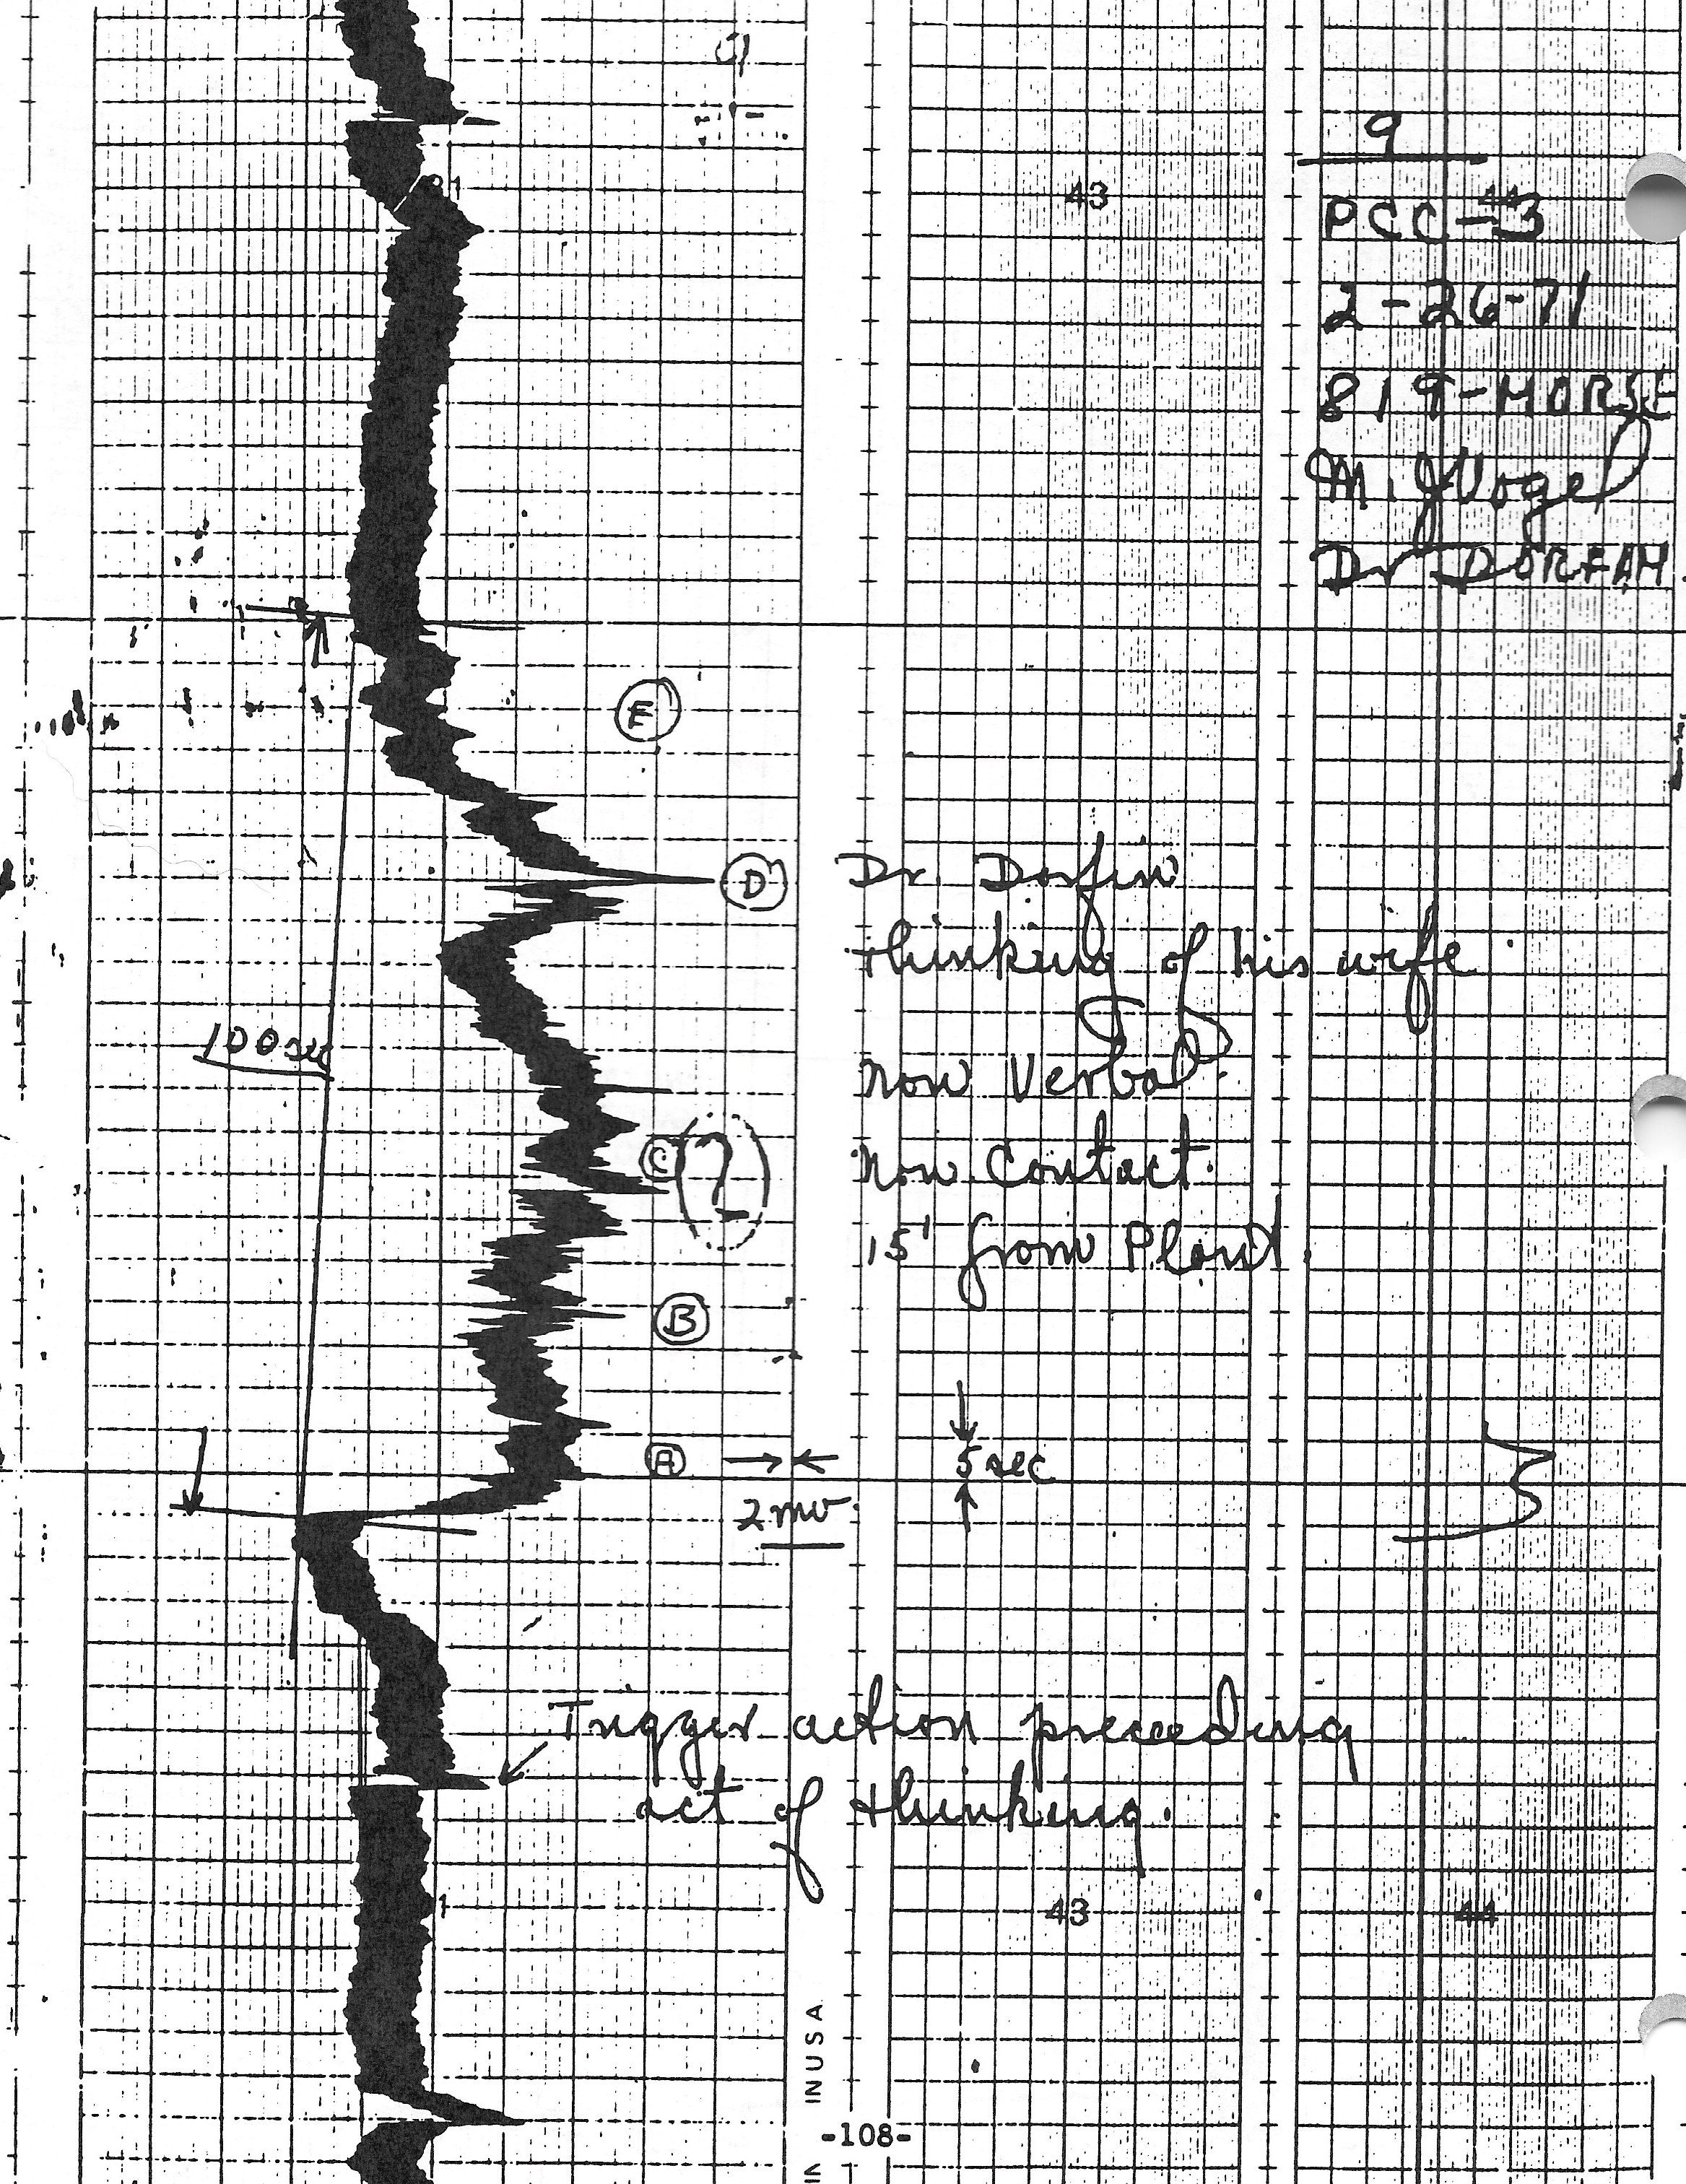 9
43
PCC-3
2-26-71
819-MORSE
M. J Vogel
Dr DORFAM
E
D
Dr. Dorfin
thinking of his wife
100 sec
Non Verbal.
C
?
Non Contact.
15' from Plant.
B
A
5 sec
2 mv.
Trigger action preceeding
act of thinking.
43
44
IN USA
-108-